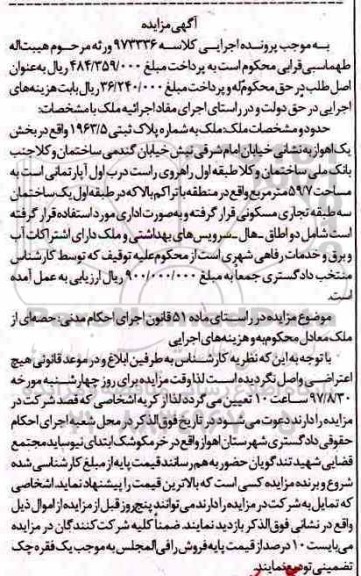 آگهی مزایده
به موجب پرونده اجرایی کلاسه ۹۷۳۳۳۶ ورثه مرحوم هیبت‌اله
طهماسبی قرابی محکوم است به پرداخت مبلغ ۴۸۴/۳۵۹/۰۰۰ ریال به عنوان
اصل طلب در حق محکوم‌له و پرداخت مبلغ ۳۶/۲۴۰/۰۰۰ ریال بابت هزینه‌های
اجرایی در حق دولت و در راستای اجرای مفاد اجرائیه ملک با مشخصات:
حدود و مشخصات ملک: ملک به شماره پلاک ثبتی ۱۹۶۳/۵ واقع در بخش
یک اهواز به نشانی خیابان امام شرقی نبش خیابان گندمی ساختمان وکلا جنب
بانک ملی ساختمان وکلا طبقه اول راهروی راست درب اول آپارتمانی است به
مساحت ۵۹/۷ متر مربع واقع در منطقه با تراکم بالا که در طبقه اول یک ساختمان
سه طبقه تجاری مسکونی قرار گرفته و به صورت اداری مورد استفاده قرار گرفته
است شامل دو اطاق - هال - سرویس‌های بهداشتی و ملک دارای اشتراکات آب
و برق و خدمات رفاهی شهری است از محکوم‌علیه توقیف که توسط کارشناس
منتخب دادگستری جمعاً به مبلغ ۹۰۰/۰۰۰/۰۰۰ ریال ارزیابی به عمل آمده
است.
موضوع مزایده در راستای ماده ۵۱ قانون اجرای احکام مدنی: حصه‌ای از
ملک معادل محکوم به و هزینه‌های اجرایی
با توجه به این که نظریه کارشناس به طرفین ابلاغ و در موعد قانونی هیچ
اعتراضی واصل نگردیده است لذا وقت مزایده برای روز چهارشنبه مورخه
۹۷/۸/۳۰ ساعت ۱۰ تعیین می‌گردد لذا از کریه اشخاصی که قصد شرکت در
مزایده را دارند دعوت می‌شود در تاریخ فوق‌الذکر در محل شعبه اجرای احکام
حقوقی دادگستری شهرستان اهواز واقع در خرمکوشک ابتدای نیوساید مجتمع
قضایی شهید تندگویان حضور به هم رسانند قیمت پایه از مبلغ کارشناسی شده
شروع و برنده مزایده کسی است که بالاترین قیمت را پیشنهاد نماید. اشخاصی
که تمایل به شرکت در مزایده را دارند می‌توانند پنج روز قبل از مزایده از اموال ذیل
واقع در نشانی فوق‌الذکر بازدید نمایند. ضمناً کلیه شرکت‌کنندگان در مزایده
می‌بایست ۱۰ درصد از قیمت پایه فروش را فی‌المجلس به موجب یک فقره چک
تضمینی تودیع نمایند.